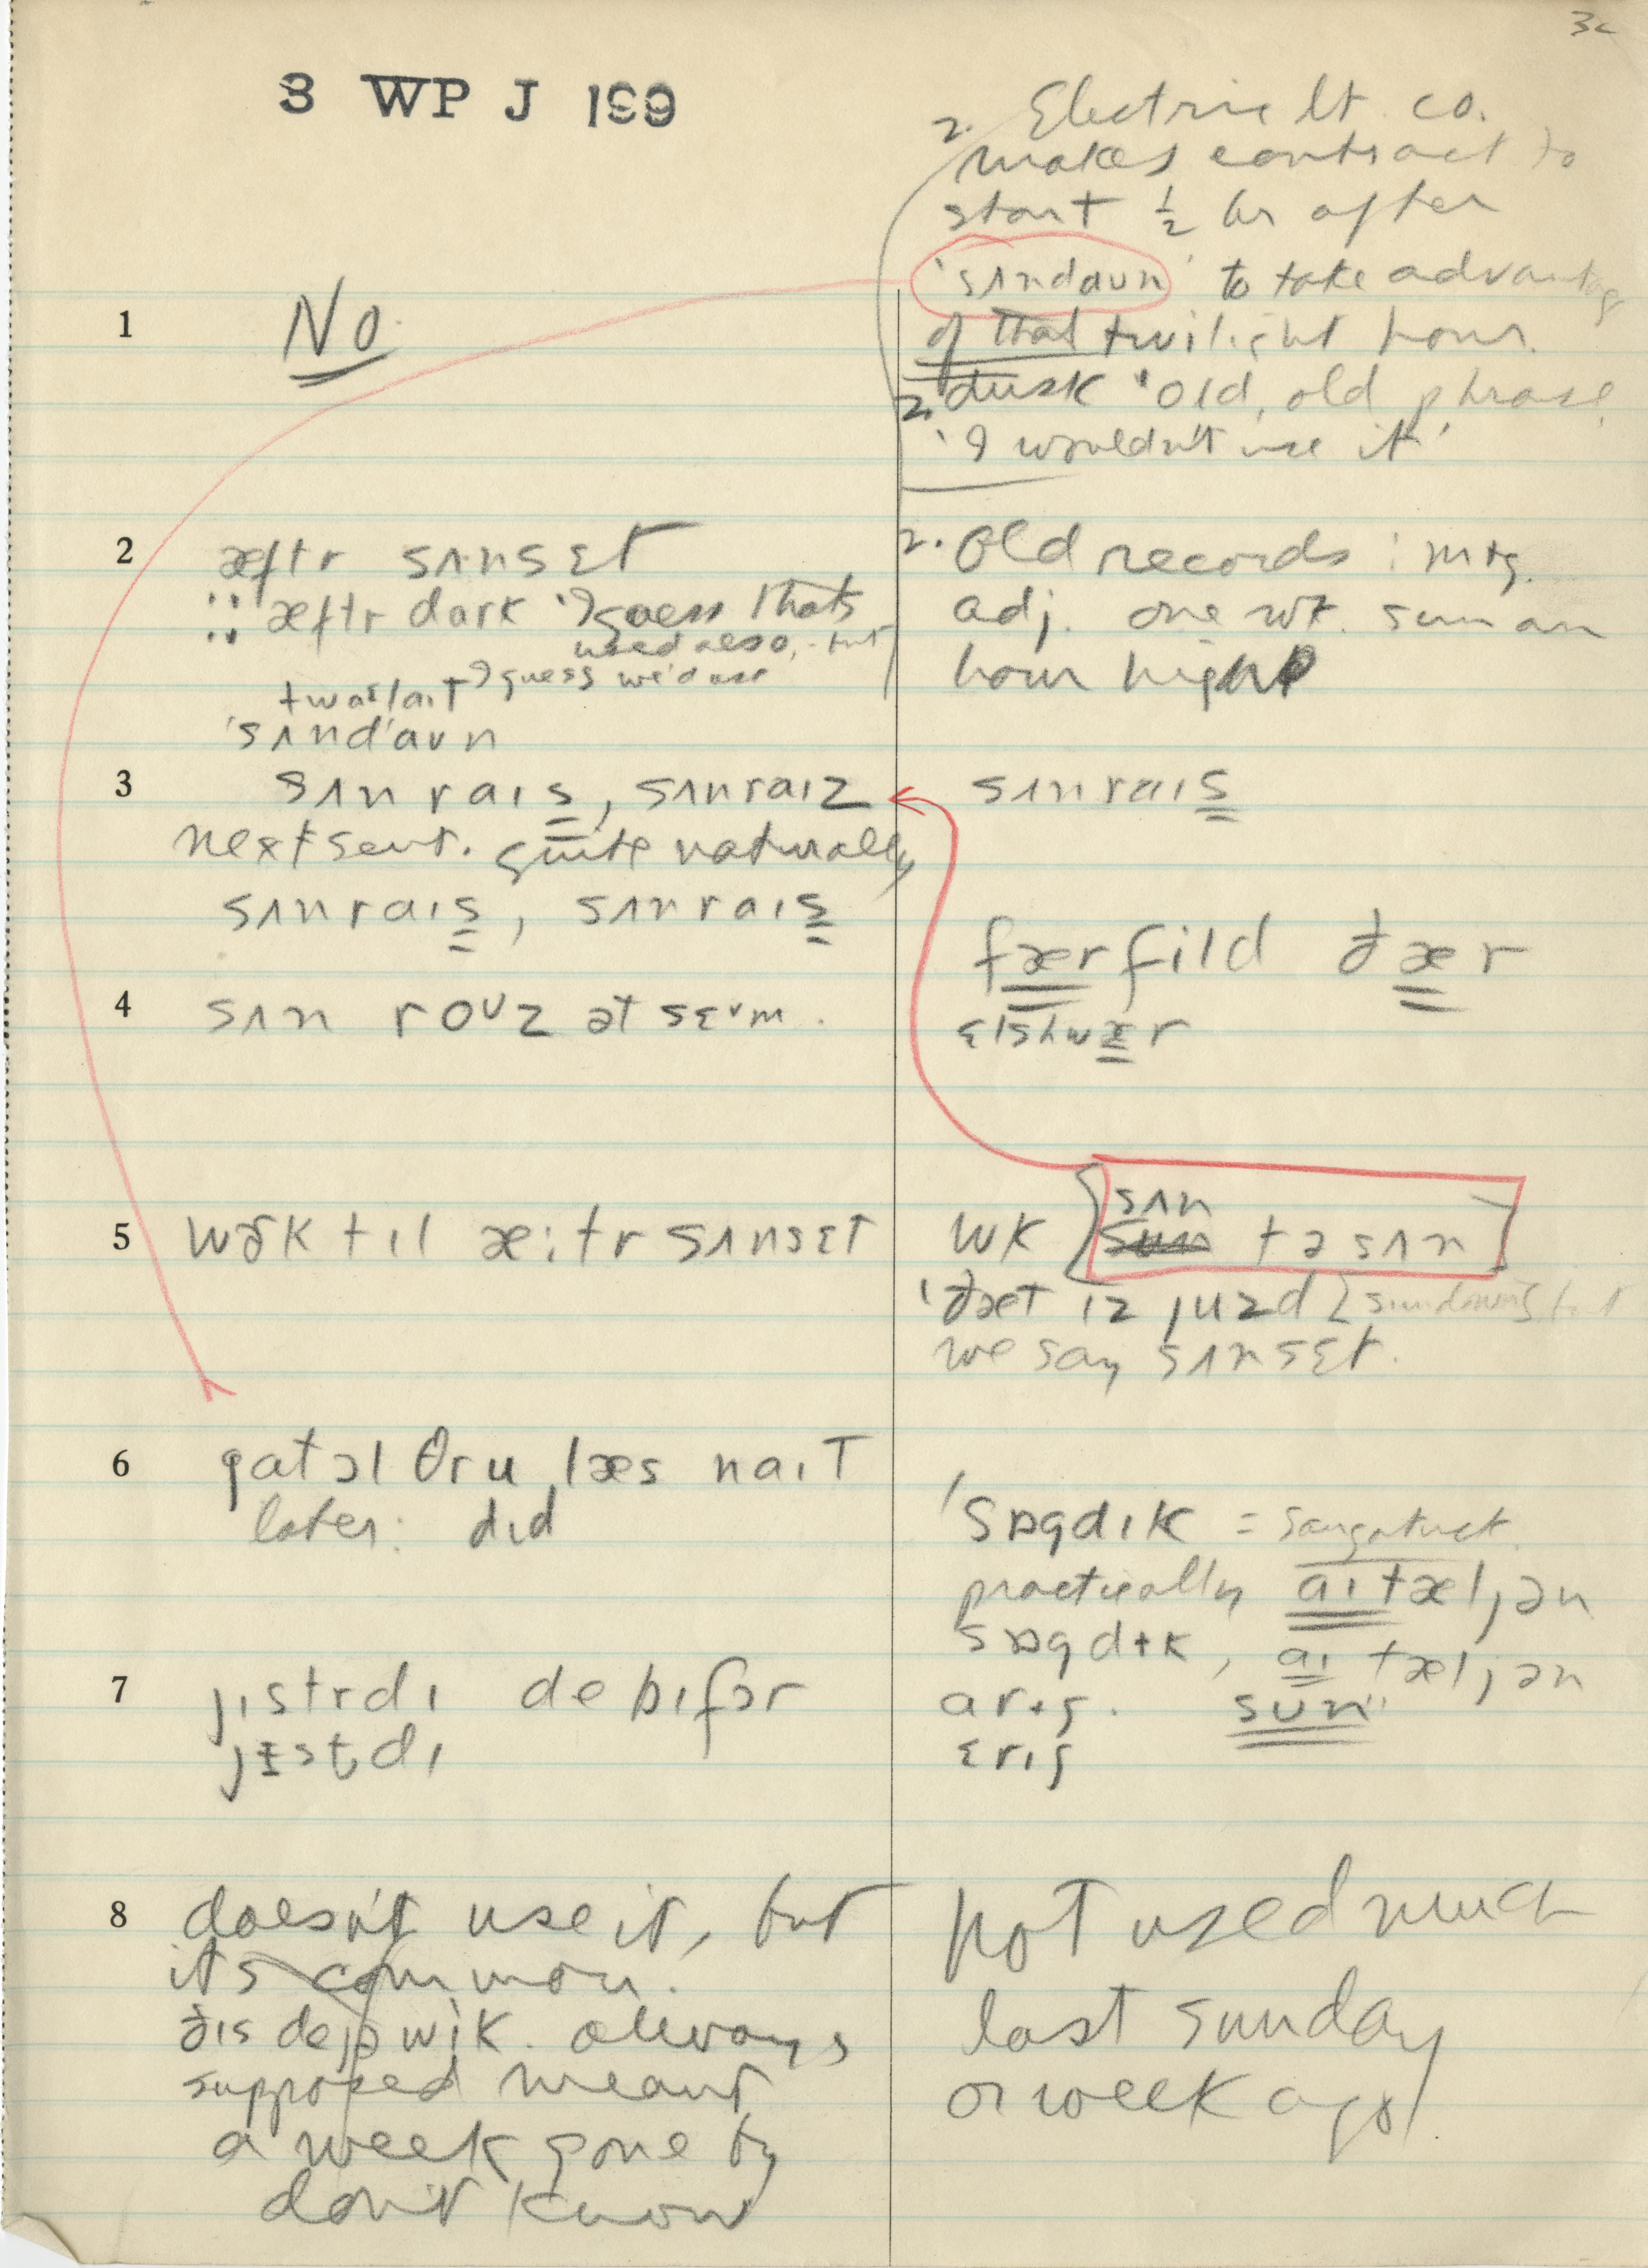 3c
3 WP J 199
2. Electric lt. co.
makes contract to
start ½ hr after
'sʌndaun' to take advantage
of that twilight hour.
2. dusk 'old, old phrase,
'I wouldn't use it'
1 No
2 æftr sʌnsɛt
:: æftr dark 'I guess that's
used also, but
twaɪlaɪt I guess we'd use
'sʌnd'aun
2. Old records : mtg.
adj. one wk. sun an
hour high
3 sʌn raɪs, sʌnraɪz
next sent. quite naturally
sʌnraɪs, sʌnraɪs
sʌnraɪs
færfild ðær
ɛlshwær
4 sʌn roᴜz ət sɛvm.
5 wək tɪl æ:tr sʌnsɛt
wk {sʌn
sun tə sʌn}
'ðæt ɪz juzd [sundown] but
we say sʌnsɛt.
6 gat ɔl θru læs naɪt
later: dɪd
'sɒgdɪk = Saugatuck.
practically aɪtæljən
sɒgdɨk, aɪ tæljən
arɪʃ. sun"
ɛrɪʃ
7 jɪstrdɪ de bɪfɔr
jɪstdɪ
8 doesn't use it, but
it's common.
ðɪs de ə wik. always
supposed meant
a week gone by
don't know
not used much
last sunday
or week ago